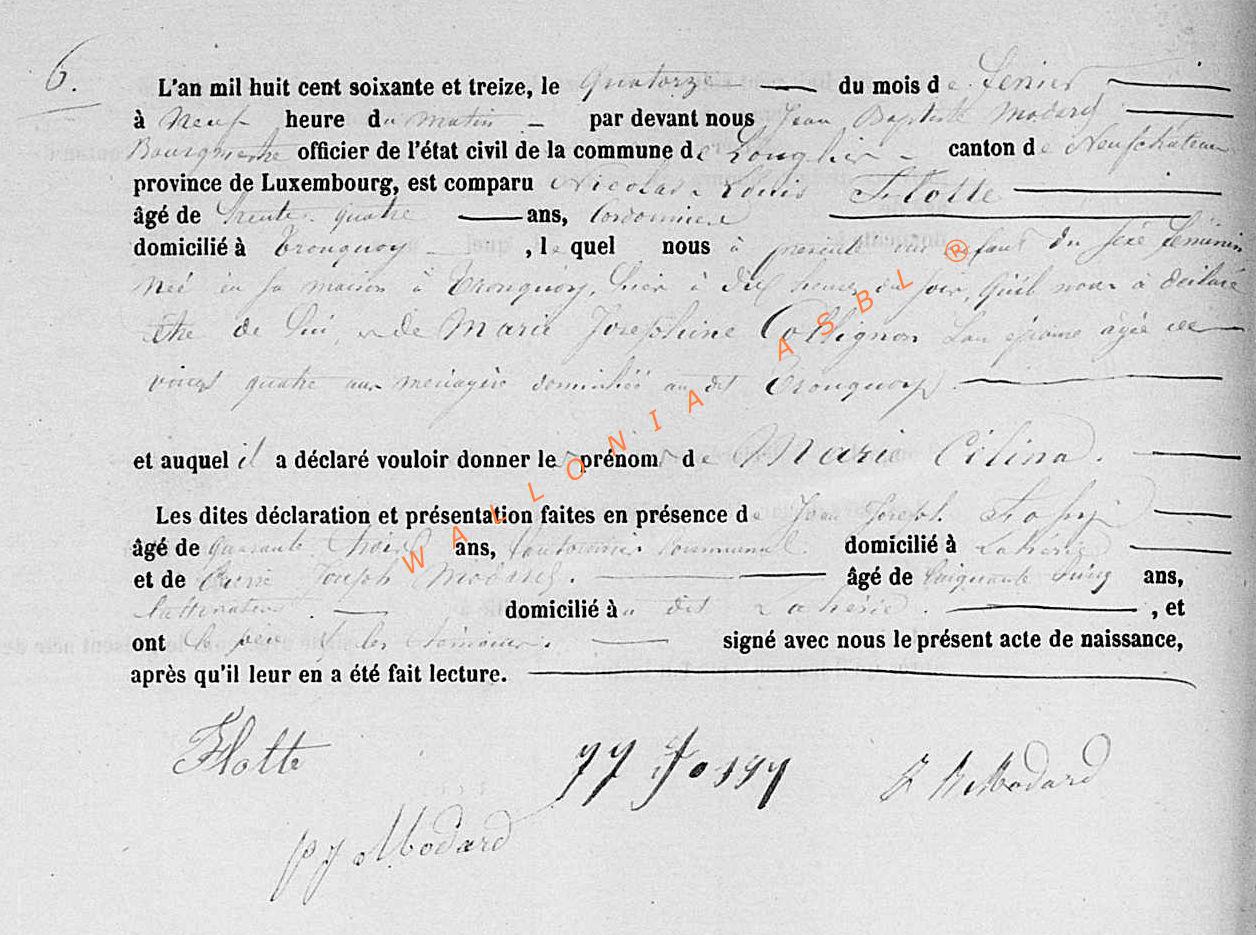 6.
L'an mil huit cent soixante et treize, le Quatorze du mois de Fevrier
à Neuf heure du matin par devant nous Jean Baptiste Modard
Bourgmestre officier de l'état civil de la commune de Longlier canton de Neufchâteau
province de Luxembourg, est comparu Nicolas Louis Flotte
âgé de trente quatre ans, Cordonnier
domicilié à Tronquoy, le quel nous à presenté un enfant du sexe feminin
née en sa maison à Tronquoy, hier à dix heures du soir, qu'il nous à déclaré
être de lui et de Marie Josephine Collignon son épouse agée de
vingt quatre ans menagère domiciliée au dit Tronquoy.
et auquel il a déclaré vouloir donner les prénoms de Marie Célina.
Les dites déclaration et présentation faites en présence de Jean Joseph
âgé de quarante trois ans, Cantonnier Communal. domicilié à Lahérie
et de Pierre Joseph Modard. âgé de Cinquante Cinq ans,
Cultivateur domicilié au dit Lahérie. , et
ont le père et les témoins. signé avec nous le présent acte de naissance,
après qu'il leur en a été fait lecture.
Flotte
J B Modard
p j Modard
WALLONIA ASBL ®